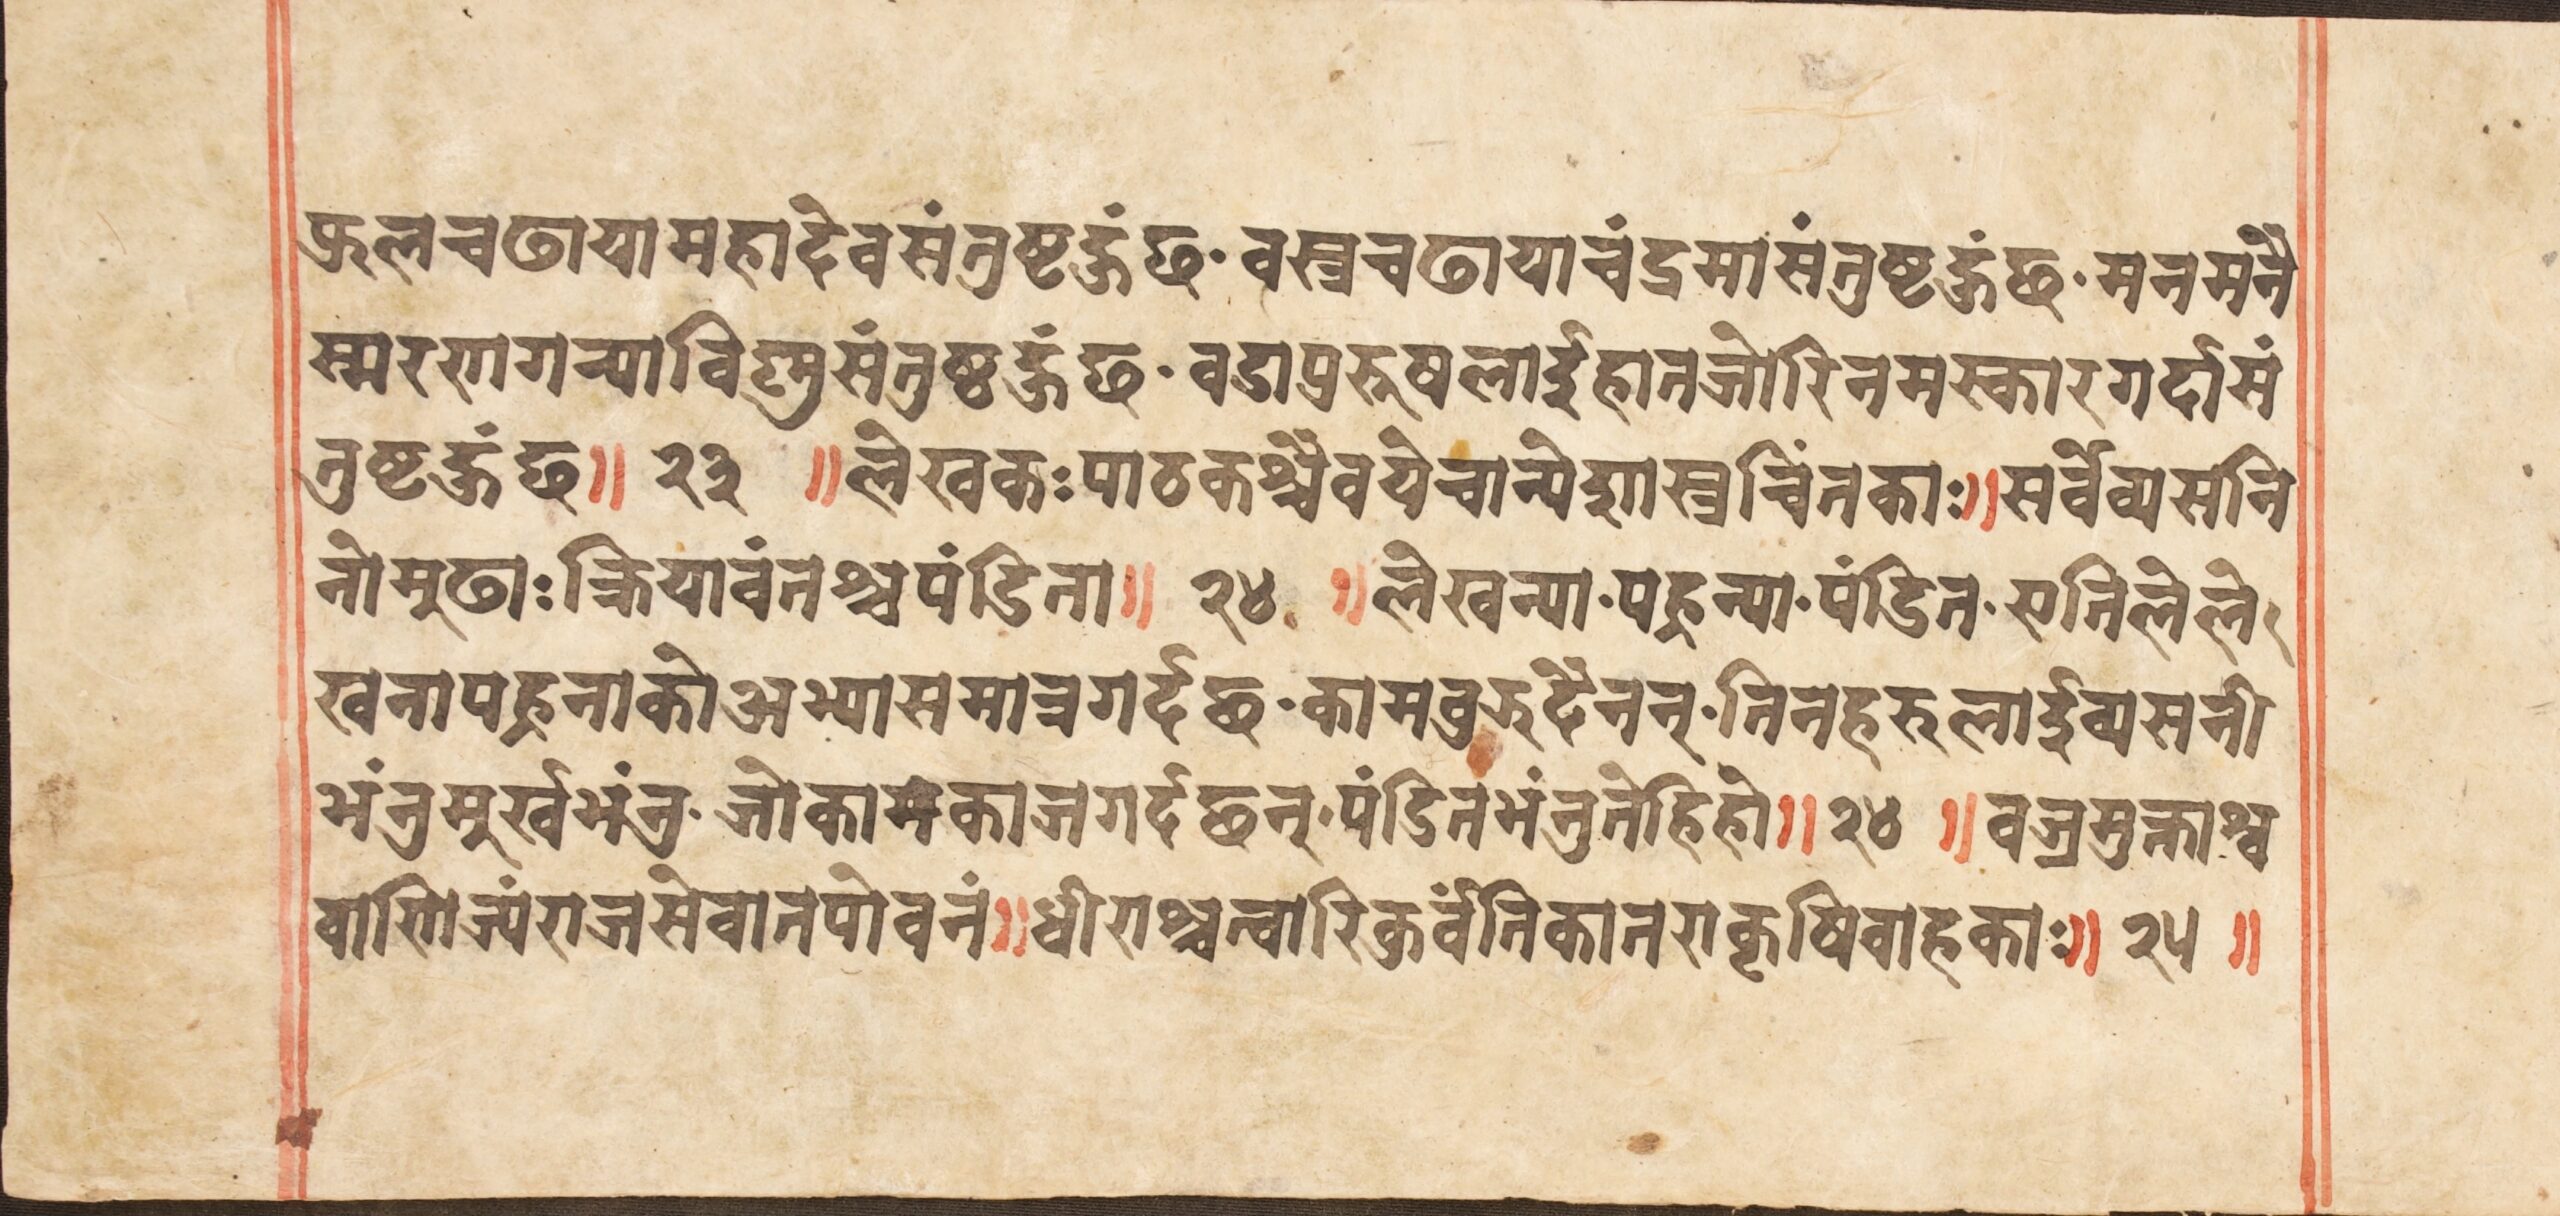 फुलचढाया महादेव संतुष्ट हुंछ· वस्त्रचढाया चंद्रमा संतुष्ट हुंछ· मनमनै
स्मरण गन्या विष्णु संतुष्ठ हुंछ· वडा पुरूषलाई हात जोरि नमस्कार गर्दा सं
तुष्ट हुंछ॥ २३ ॥ लेखकः पाठकश्चैव ये चान्ये शास्त्रचिंतकाः॥ सर्वे व्यसनि
नो मुढाः क्रियावंतश्च पंडिता॥ २४ ॥ लेखन्या· पढ्न्या· पंडित· एतिले ले
खना पढ्नाको अभ्यास मात्र गर्दछ· काम वुझ्दैनन्· तिनहरुलाई व्यसनी
भंनु मुर्ख भंनु· जो कामकाज गर्दछन्· पंडित भंनु तेहि हो॥ २४ ॥ वज्रमुक्ताश्व
वाणिज्यं राजसेवा तपोवनं॥ धीराश्चत्वारि कुर्वंति कातरा कृषिवाहकाः॥ २५ ॥